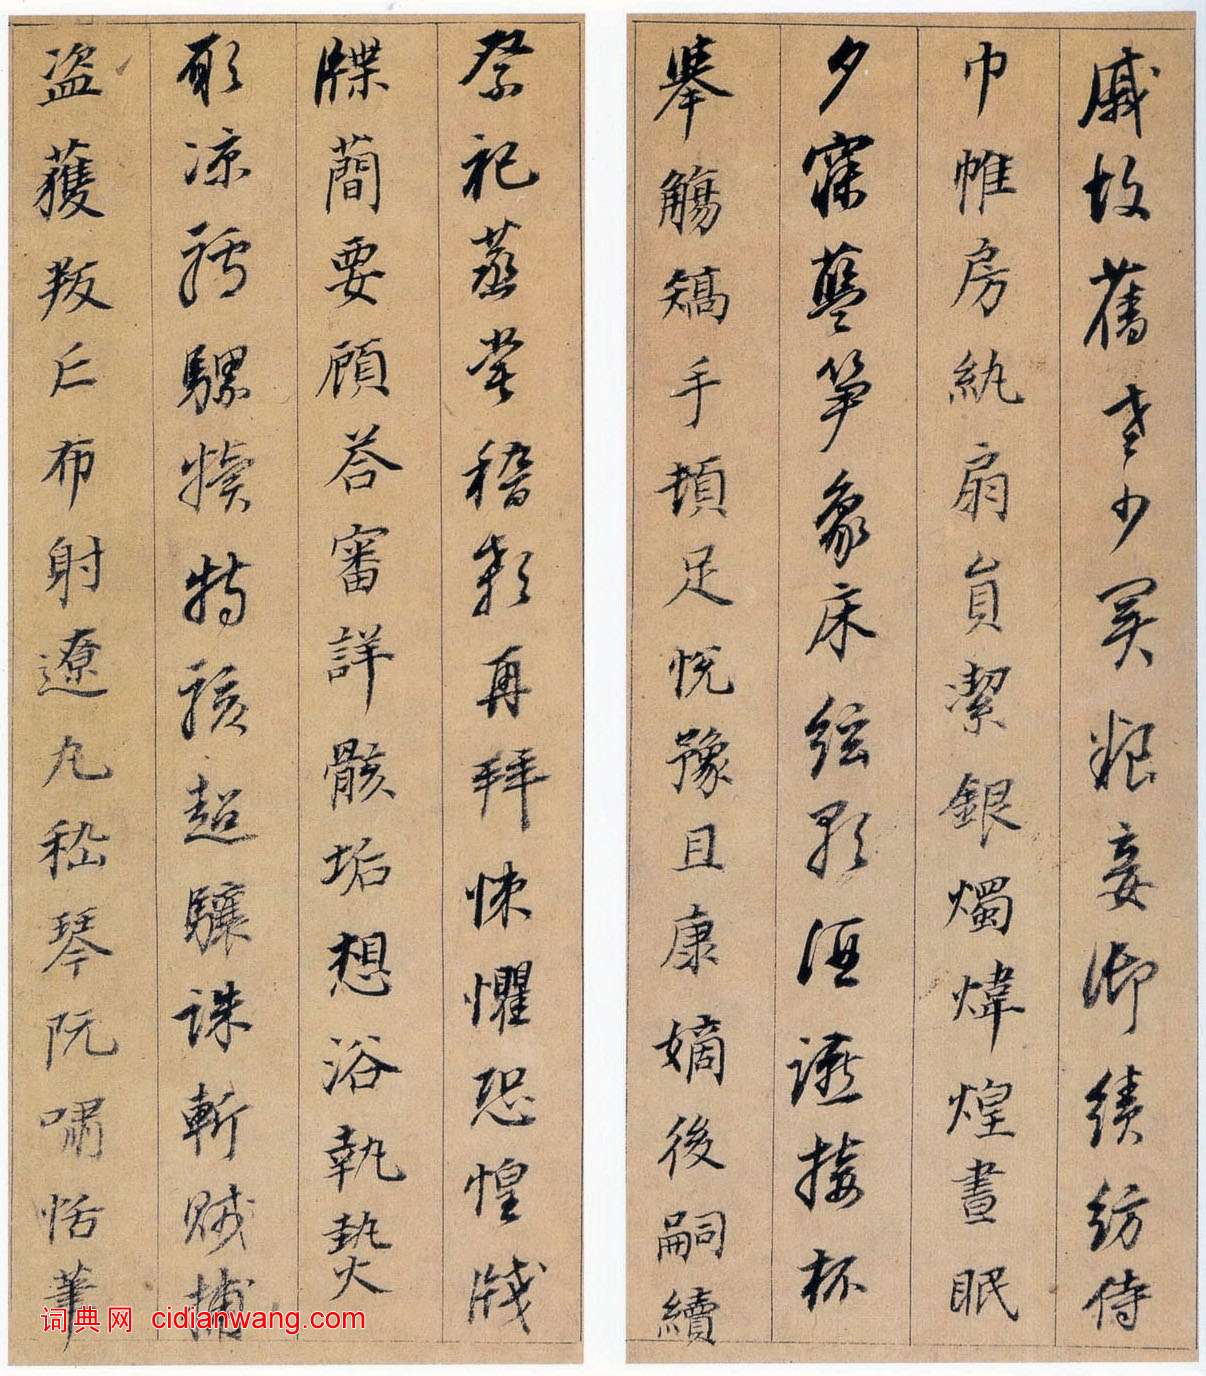 戚故舊老少異粮妾御績紡侍
巾帷房紈扇員潔銀燭煒煌晝眠
夕寐藍笋象床絃歌酒讌接杯
舉觴矯手頓足悅豫且康嫡後嗣續
祭祀蒸甞稽顙再拜悚懼恐惶牋
牒蕳要顧荅審詳骸垢想浴執熱
願凉驢騾犢特駭超驤誅斬賊捕
盗獲叛亡布射遼丸嵇琴阮嘯恬筆
词典网 cidianwang.com